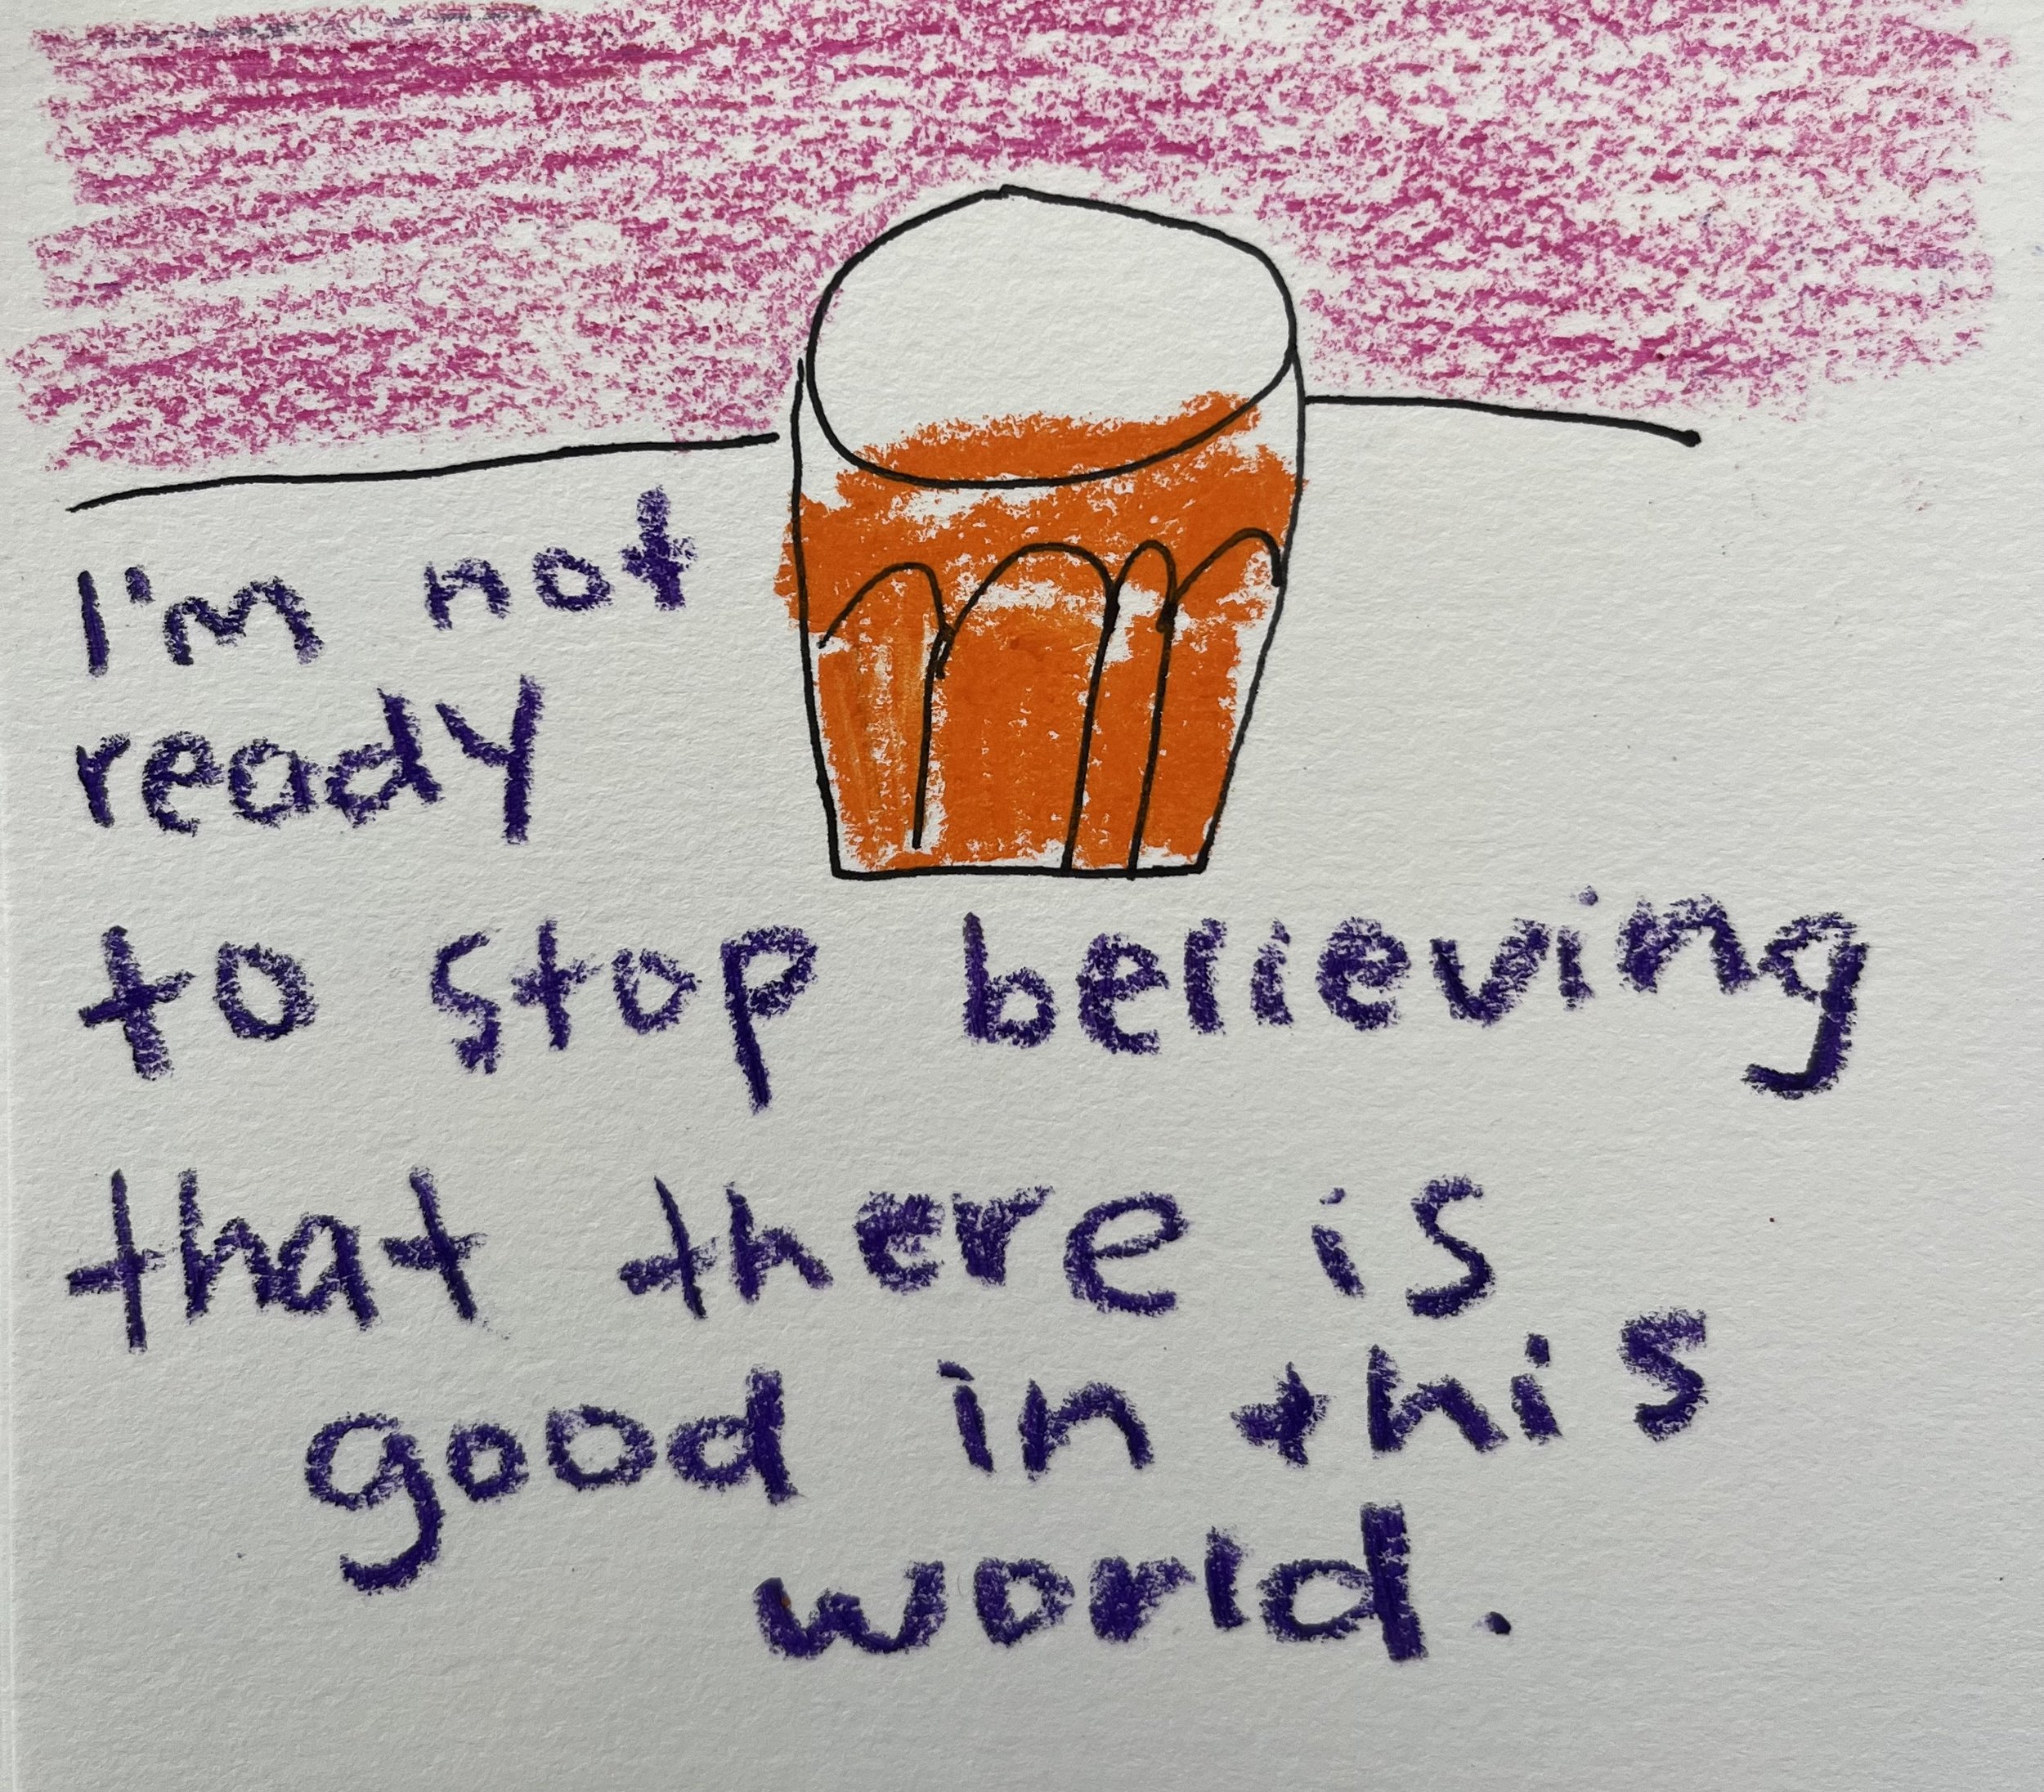 I'm not
ready
to stop believing
that there is
good in this
world.